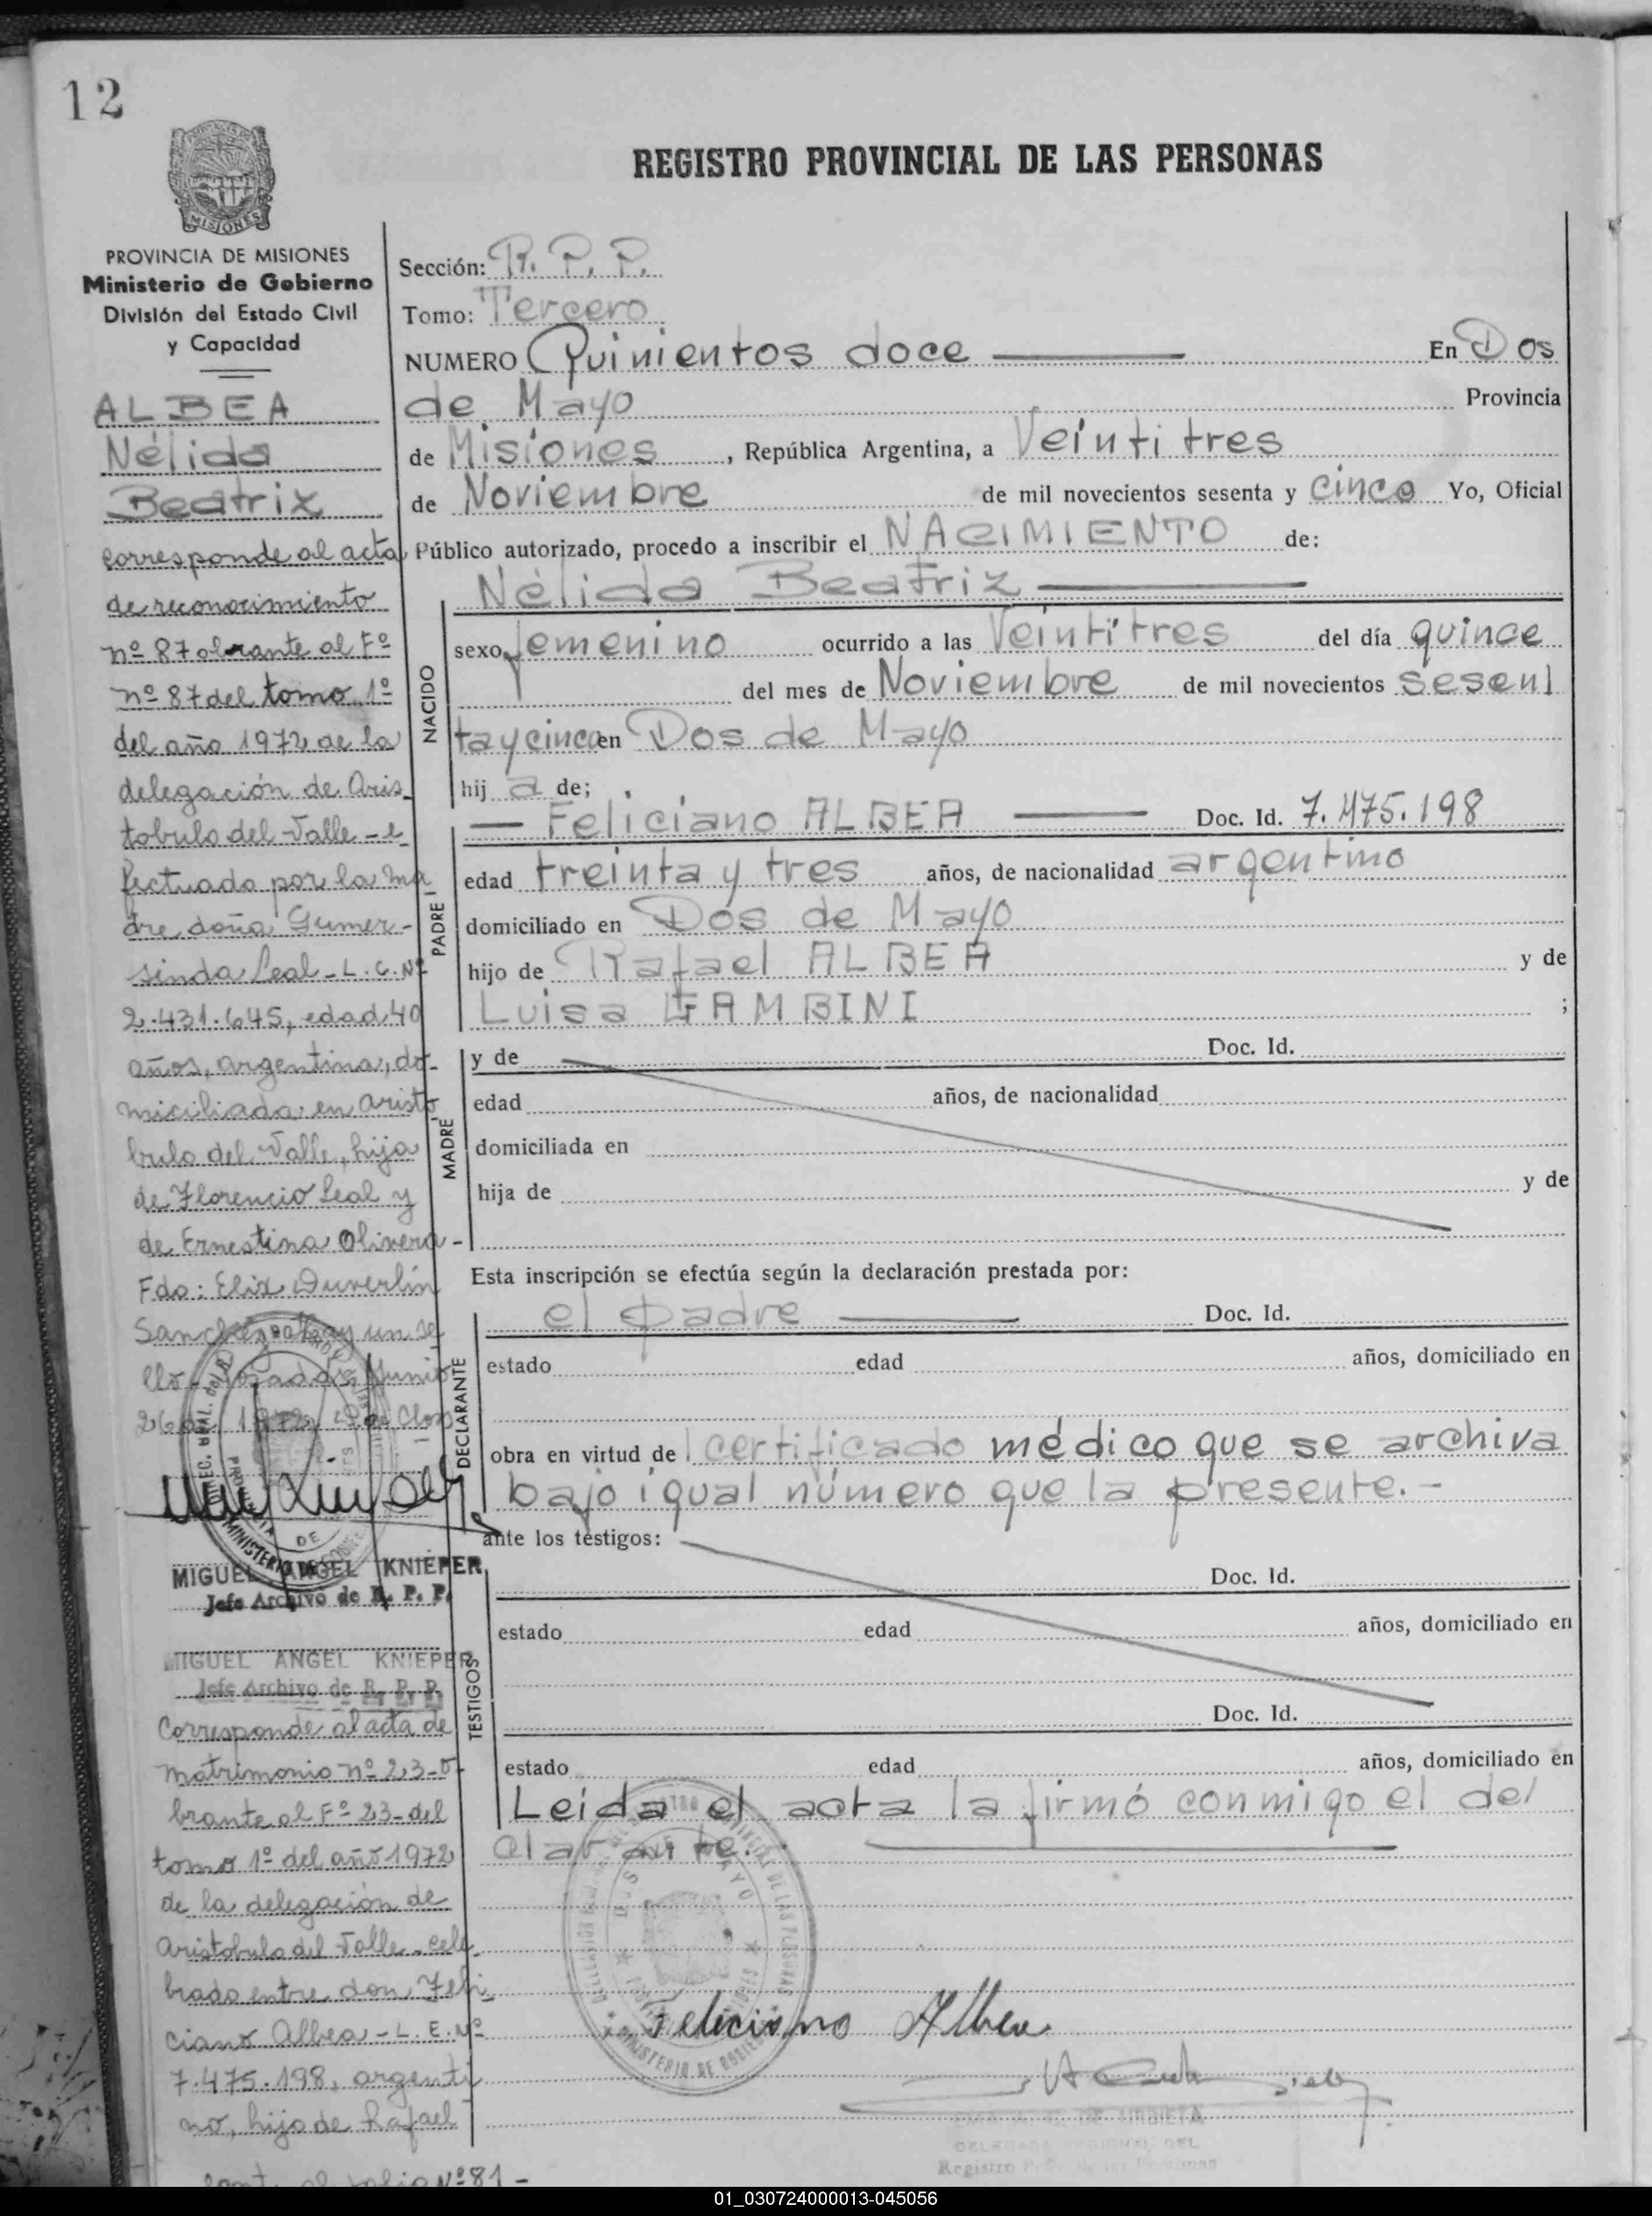 12
REGISTRO PROVINCIAL DE LAS PERSONAS
MISIONES
PROVINCIA DE MISIONES
Ministerio de Gobierno
División del Estado Civil
y Capacidad
ALBEA
Nélida
Beatriz
corresponde al acta
de reconocimiento
nº 87 obrante al Fº
nº 87 del tomo 1º
del año 1972 de la
delegación de Aris_
tobulo del Valle - e_
fectuado por la ma_
dre doña Gumer-
sinda Leal - L. C. Nº
2.431.645, edad 40
años, argentina, do-
miciliada en Aristó_
bulo del Valle, hija
de Florencio Leal y
de Ernestina Olivera -
Fdo: Elix Duverlín
Sanchez hay un se
llo - Posadas, Junio
26 de 1972
MIGUEL ANGEL KNIEPER
Jefe Archivo de R. P. P.
MIGUEL ANGEL KNIEPER
Jefe Archivo de R. P. P.
Corresponde al acta de
matrimonio nº 23-o-
brante al Fº 23- del
tomo 1º del año 1972
de la delegación de
Aristobulo del Valle - cele_
brado entre don Feli_
ciano Albea - L. E. Nº
7.475.198, argenti
no, hijo de Rafael
al folio Nº 81 -
Sección: R. P. P.
Tomo: Tercero
NUMERO Quinientos doce En Dos
de Mayo Provincia
de Misiones, República Argentina, a Veintitres
de Noviembre de mil novecientos sesenta y cinco Yo, Oficial
Público autorizado, procedo a inscribir el NACIMIENTO de:
Nélida Beatriz
NACIDO
sexo femenino ocurrido a las Veintitres del día quince
del mes de Noviembre de mil novecientos sesen|
taycinco en Dos de Mayo
hij a de;
PADRE
— Feliciano ALBEA — Doc. Id. 7.475.198
edad treinta y tres años, de nacionalidad argentino
domiciliado en Dos de Mayo
hijo de Rafael ALBEA y de
Luisa GAMBINI ;
MADRE
y de Doc. Id.
edad años, de nacionalidad
domiciliada en
hija de y de
Esta inscripción se efectúa según la declaración prestada por:
DECLARANTE
el padre Doc. Id.
estado edad años, domiciliado en
obra en virtud de certificado médico que se archiva
bajo igual número que la presente.-
ante los testigos:
TESTIGOS
Doc. Id.
estado edad años, domiciliado en
Doc. Id.
estado edad años, domiciliado en
Leida el acta la firmó conmigo el del
clarante.
Feliciano Albea
DELEGADA REGIONAL DEL
Registro Prov. de las Personas
01_030724000013-045056